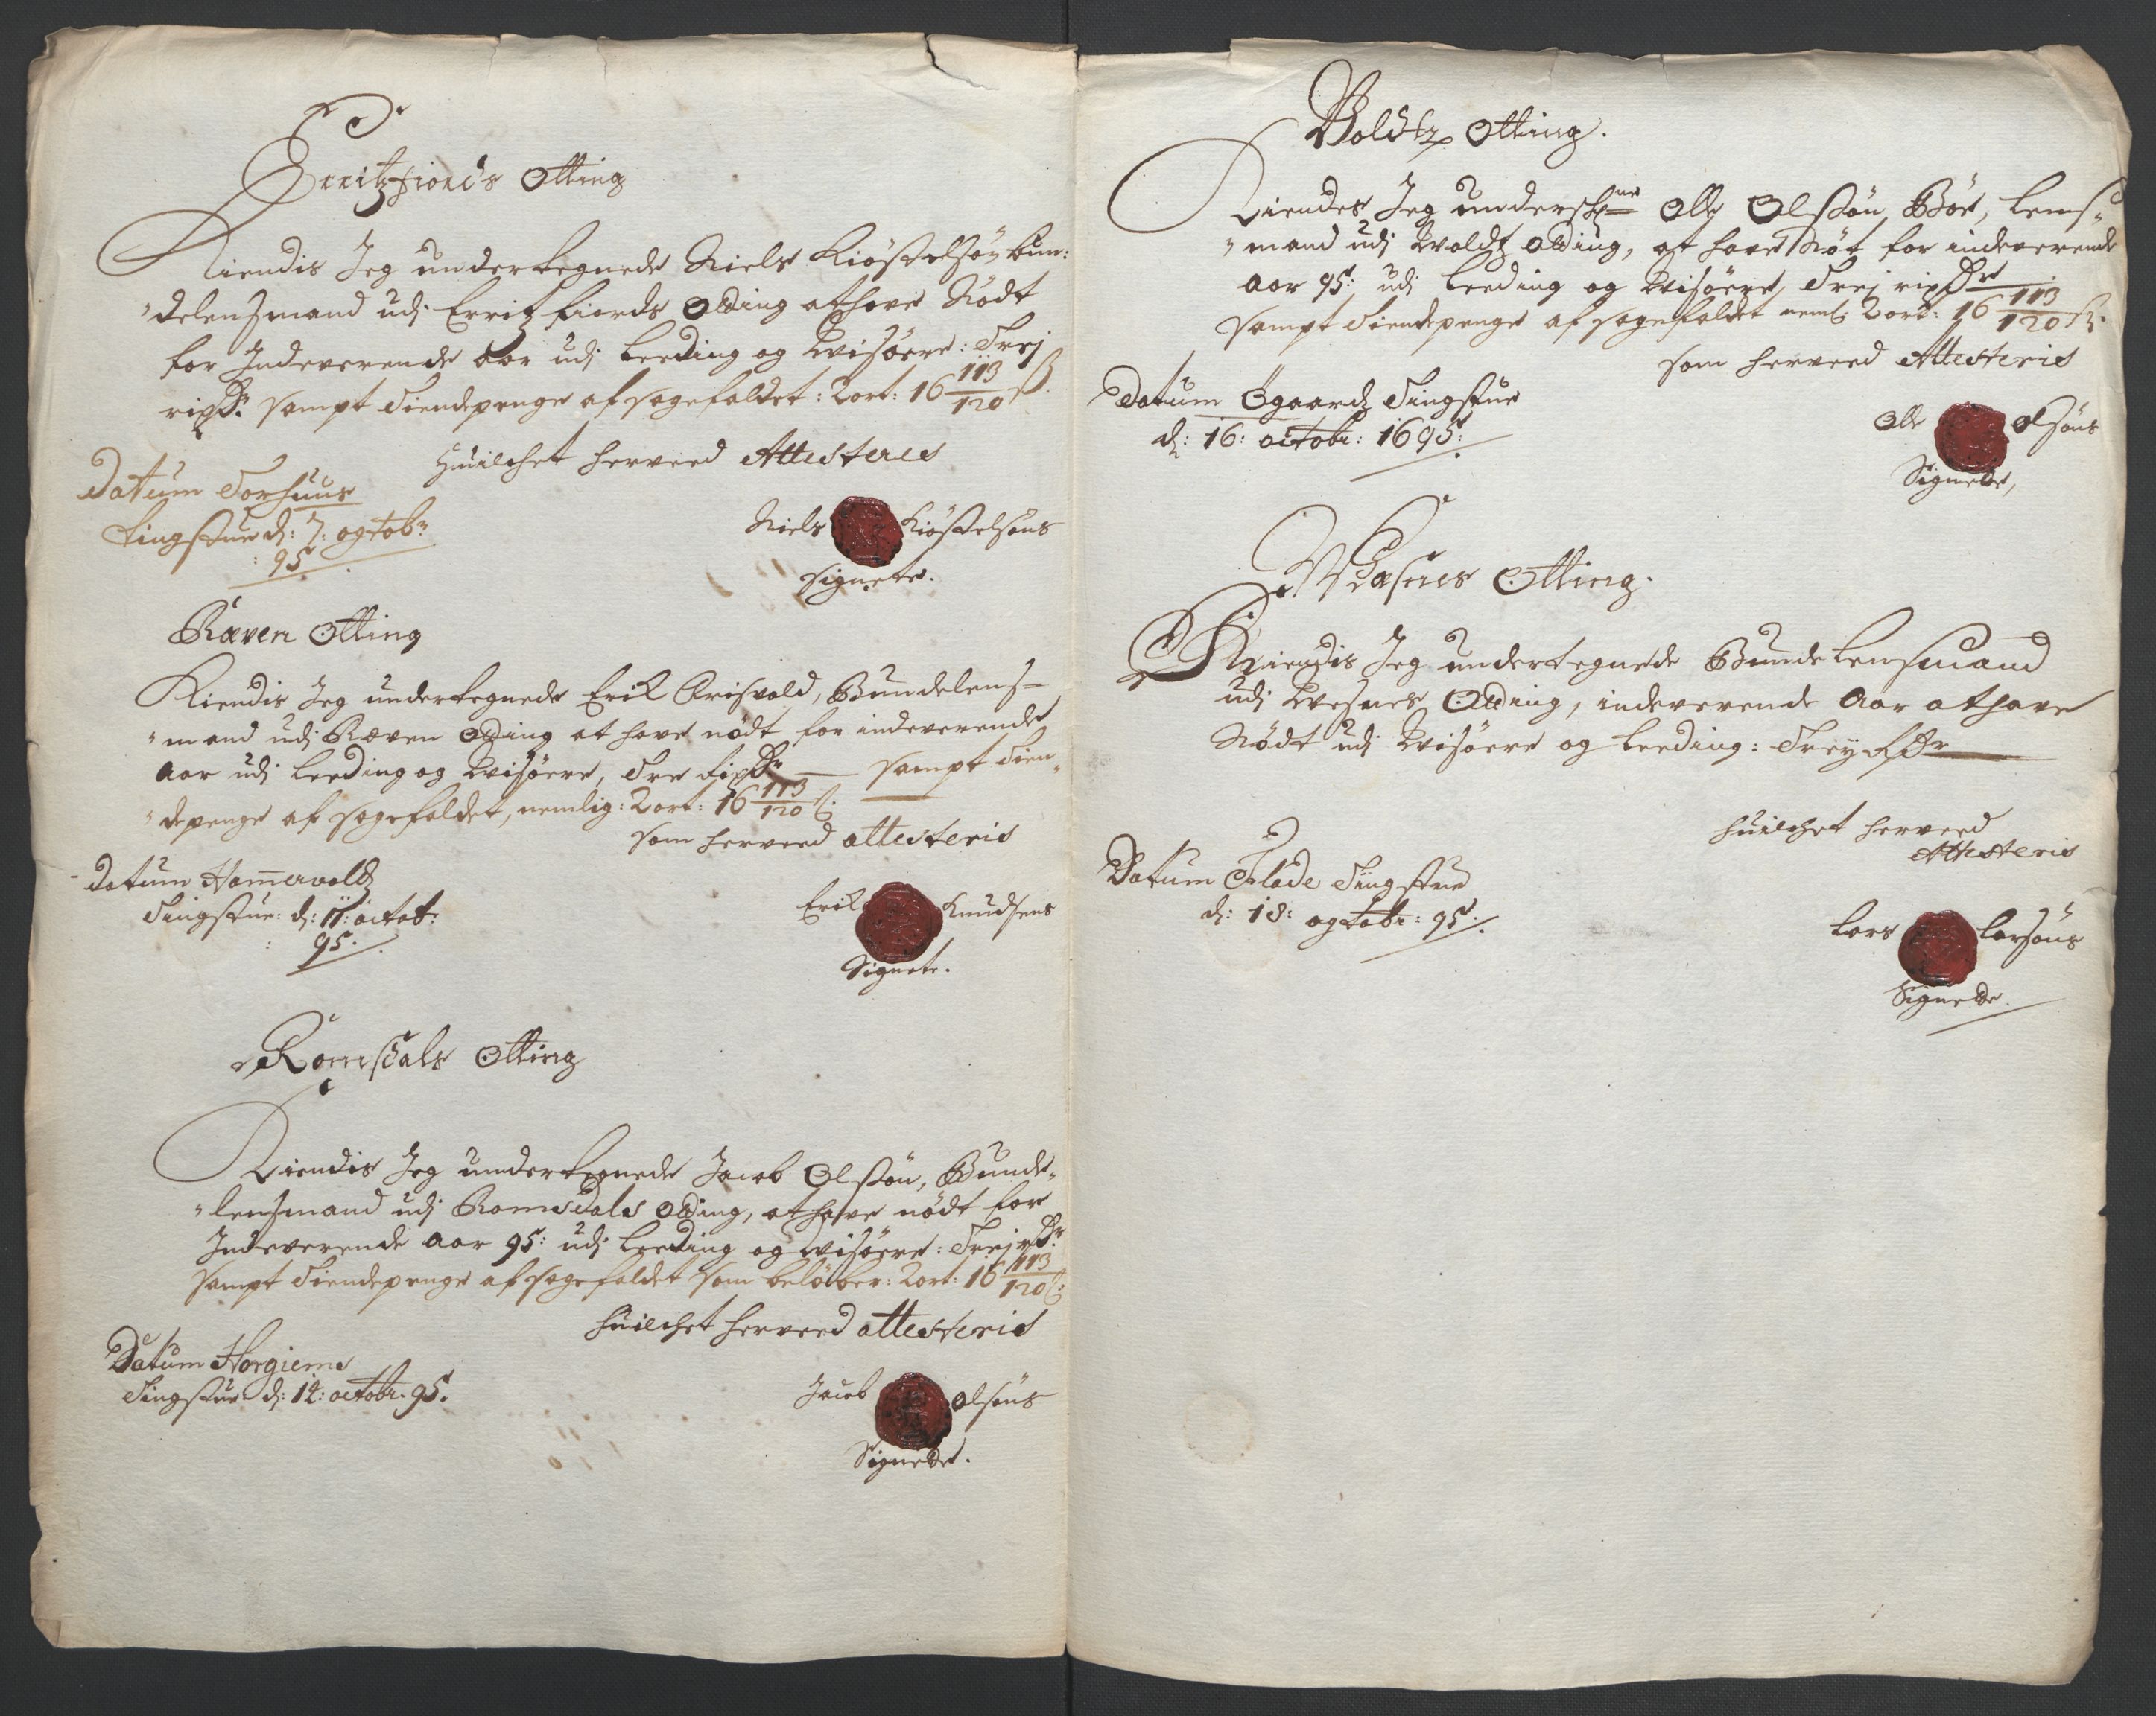 Erritzfiords Otting
Kiendis Jeg undertegnede Niels Kiöstelsön bun:
"delensmand udj Erritzfiords Otting at have Nödt
for Indeverende Aar udj Leeding og Wisöere: Trej
rixdr. sampt tiendepenge af sagefaldet: 2 ort: 16 113/120 ß.
Huilchet herveed Attesteres
Datum Torhuus
tingstue d: 7: ogtobr
: 95
Niels Kiöstelsöns
signete.
Ræven Otting
Kiendis Jeg undertegnede Erik Grisvold, Bundelens-
"mand udj Ræven Otting at have nödt for indeverende
Aar udj Leeding og Wisöere, Tre rixdr sampt tien
"depenge af sagefaldet, nemlig: 2 ort: 16 113/120 ß.
som herveed attesteris
Datum Hamervolds
Tingstue: d: 11: octob:
: 95.
Erik Knudsens
Signete.
Romsdals Otting
Kiendis Jeg undertegnede Jacob Olsön, Bunde"
"lensmand udj Romsdals Otting, at have nödt for
Indeverende Aar 95: udj Leeding og Wisöere: Trej rdr
sampt Tiendepenge af sagefaldet som belöber: 2 ort: 16 113/120 ß:
huilchet herveed attesteris
Datum Horgiems
Tingstue d: 14: octobr. 95.
Jacob Olsöns
Signete.
Voldtz Otting.
Kiendes Jeg underschne Olle Olsön Böe, Lens"
"mand udj Woldtz Otting, at have Nöt for indeverende
Aar 95: udj Leeding og Wisöere, Trej rixdr
sampt tiendepenge af sagefaldet neml: 2 ort: 16 113/120 ß.
som herveed Attesteris
Datum Ögaardz Tingstue
d: 16: octobr: 1695:
Olle Olsöns
Signete,
Wæsnes Otting.
Kiendis Jeg undertegnede Bundelensmand
udj Wesnes Otting, indeverende Aar at have
Nödt udj Wisöere og Leeding: Trey Rdr
huilchet herveed
Attesteris
Datum Flade Tingstue
d: 18: ogtobr: 95:
Lars Larsöns
Signete.